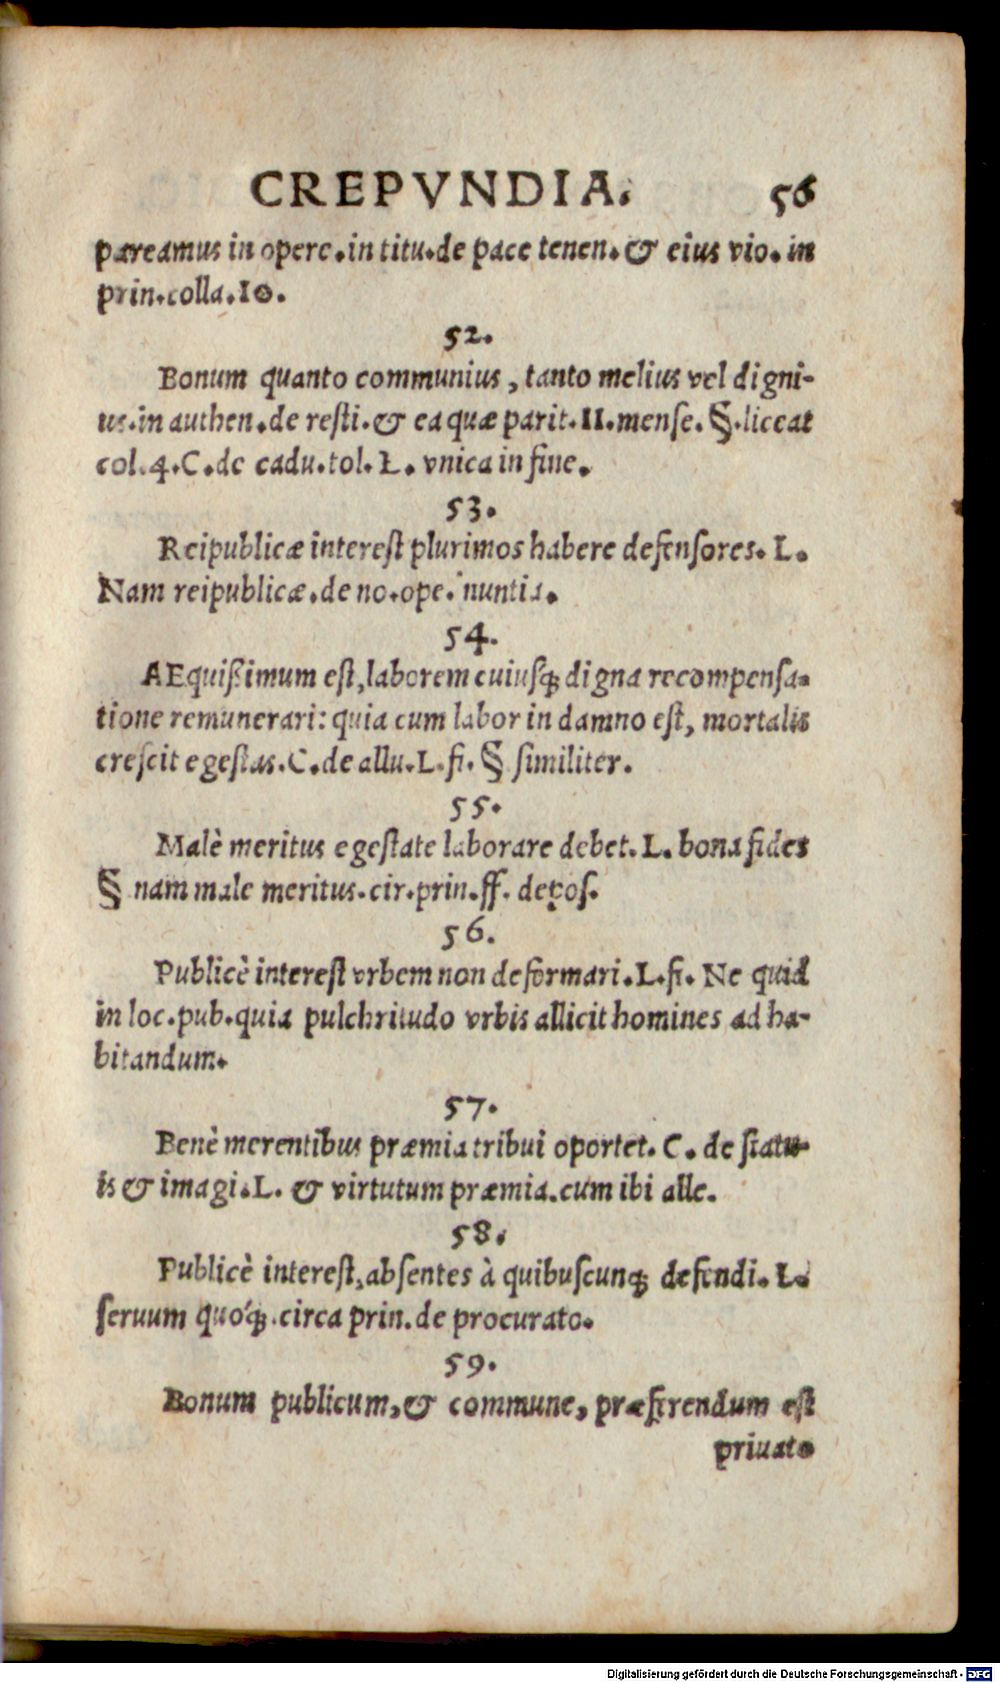 CREPVNDIA. 56
pareamus in opere.in titu.de pace tenen.& eius vio.in
prin.colla.10.
52.
Bonum quanto communius, tanto melius vel digni-
us.in authen.de resti.& ea quæ parit.II.mense.§.liceat
col.4.C.de cadu.tol.L. vnica in fine.
53.
Reipublicæ interest plurimos habere defensores. L.
Nam reipublicæ.de no.ope. nuntia.
54.
AEquißimum est,laborem cuiusq; digna recompensa-
tione remunerari: quia cum labor in damno est, mortalis
crescit egestas.C.de allu.L.fi.§ similiter.
55.
Malè meritus egestate laborare debet.L. bona fides
§ nam male meritus.cir.prin.ff. depos.
56.
Publicè interest vrbem non deformari.L.fi. Ne quid
in loc.pub.quia pulchritudo vrbis allicit homines ad ha-
bitandum.
57.
Benè merentibus præmia tribui oportet. C. de statu-
is & imagi.L. & virtutum præmia.cum ibi alle.
58.
Publicè interest,absentes à quibuscunq; defendi. L.
seruum quoq;.circa prin.de procurato.
59.
Bonum publicum,& commune, præferendum est
priuato
Digitalisierung gefördert durch die Deutsche Forschungsgemeinschaft - DFG